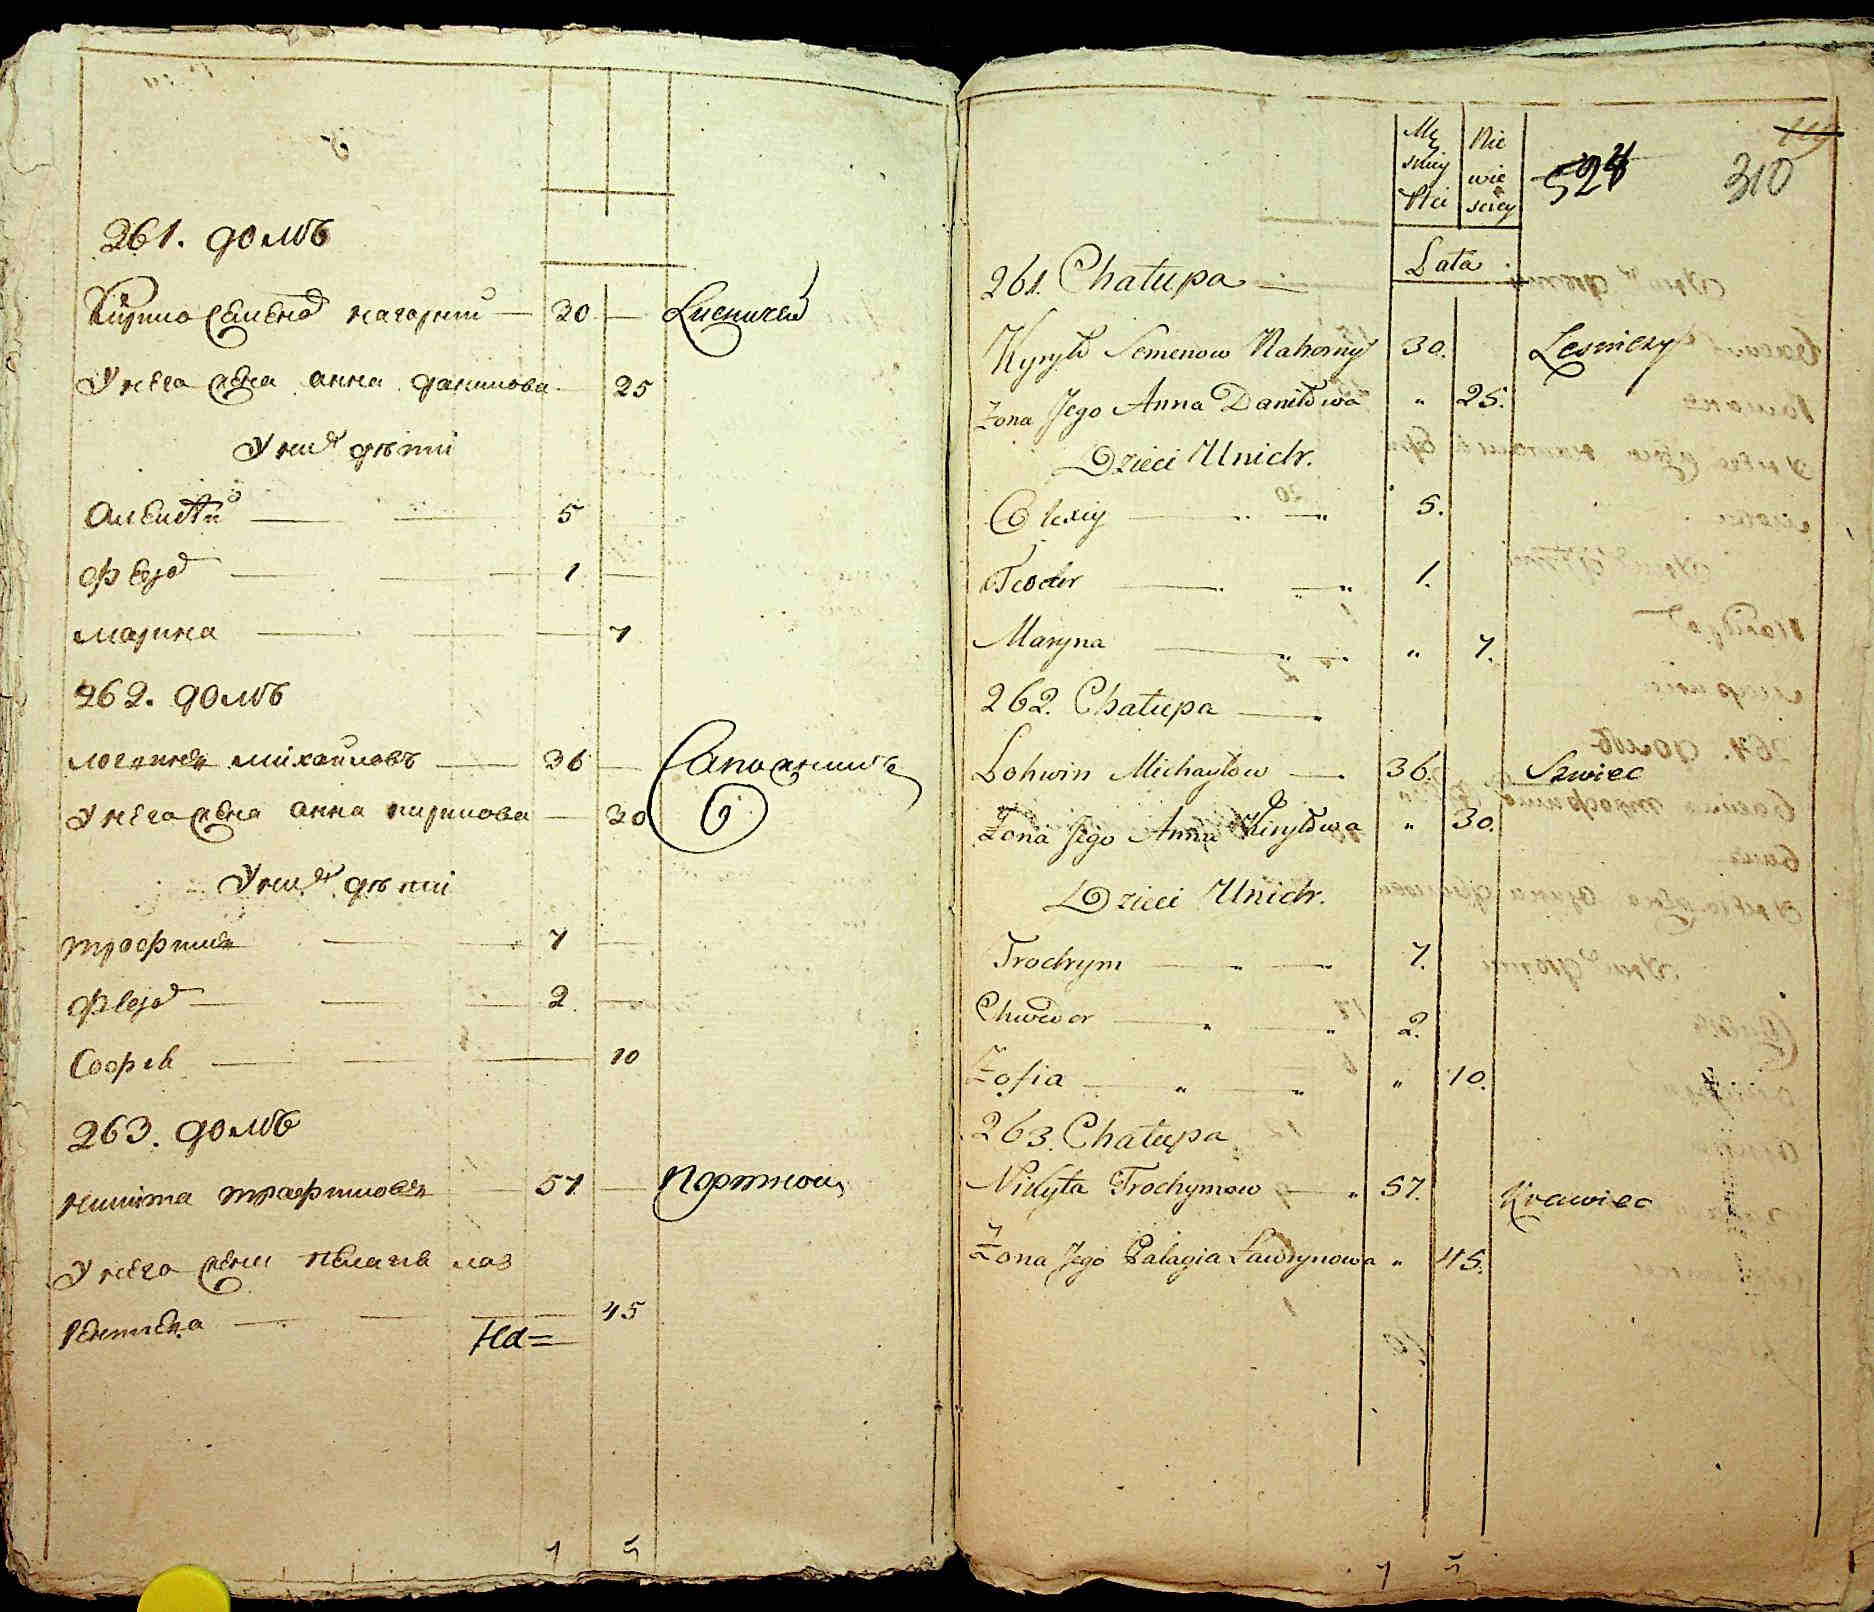 261. домъ
Кирило Семенов Нагорний — 30 — Лисничей
У него жена анна данилова — 25
У них дѣти
Алексѣй — 5
Федор — 1 —
Марина — 7
262. домъ
Логвинъ михайловъ — 36 — Сапожникъ
У него жена анна кирилова — 30
У них дѣти
трофимъ — 7 —
Федор — 2 —
Софія — 10
263. домъ
Никита трофимовъ — 57 — Портной
У него жена пелагея лав
рентиева — 45
На=
7 5
Mę Nie
skiey wie
Płci sciey
Lata
524
119
310
261. Chałupa —
Kyryło Semenow Nahorny 30. Lesniczy
Zona Jego Anna Daniłowa " 25.
Dzieci Unich.
Olexiy — " — " 5.
Teodor — " — " 1.
Maryna — " — " " 7.
262. Chałupa — "
Lohwin Michayłow — 36. Szwiec
Zona Jego Anna Kiryłowa " 30.
Dzieci Unich.
Trochym — " — " 7.
Chwedor — " — " 2.
Zofia — " — " " 10.
263. Chałupa
Nikyta Trochymow — " 57. Krawiec
Zona Jego Palagia Ławrynowa " 45.
7 5